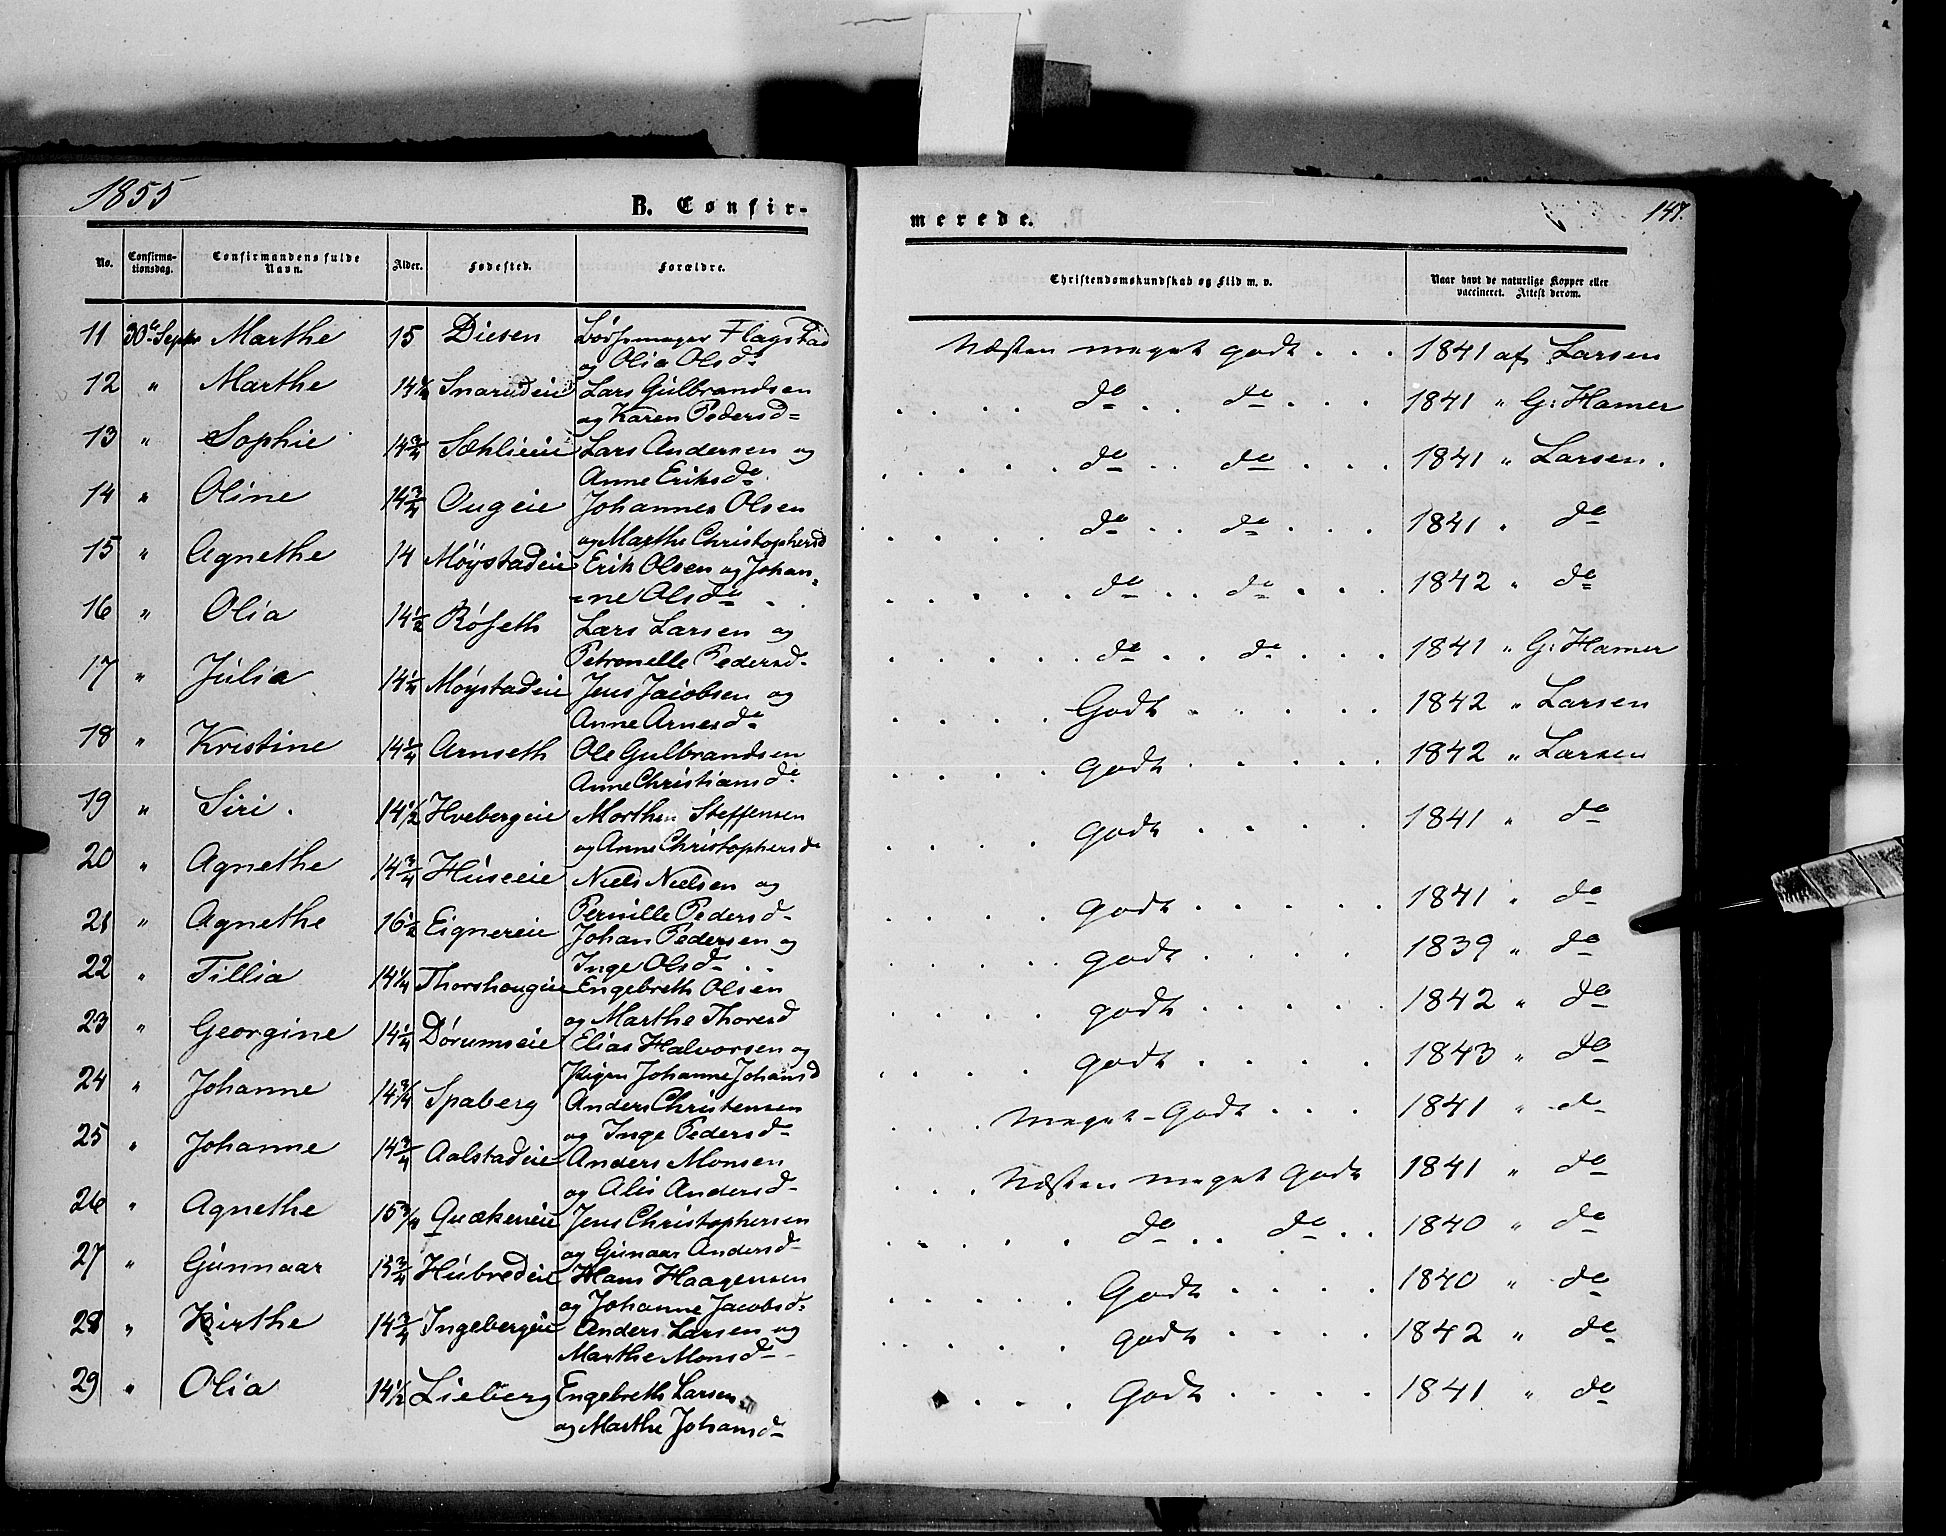 1855
B. Confir-
merede.
147.
No. Confirma-tionsdag. Confirmandens fulde Navn. Alder. Fødested. Forældre. Christendomskundskab og Flid m. v. Naar havt de naturlige Kopper eller vaccineret. Attest derom.
11 30te Septbr Marthe 15 Diesen Bødssemager Flagstad Næsten meget godt . . . 1841 af Larsen
og Olia Olsd:
12 " Marthe 14½ Snarudeie Lars Gulbrandsen do do 1841 " G: Hamer
og Karen Pedersd=
13 " Sophie 14¾ Sæhlieeie Lars Andersen og do do 1841 " Larsen.
Anne Eriksd:
14 " Oline 14¾ Ougeie Johannes Olsen do do 1841 " do
og Marthe Christophersd
15 " Agnethe 14 Møystadeie Erik Olsen og Johan= do do 1842 " do
=ne Olsd:
16 " Olia 14½ Røseth Lars Larsen og do do 1841 " G: Hamer
Petronelle Pedersd-
17 " Julia 14¼ Møystadeie Jens Jacobsen og Godt 1842 " Larsen
Anne Arnesd:
18 " Kristine 14¼ Arnseth Ole Gulbrandsen godt 1842 " Larsen
Anne Christiansd:
19 " Siri. 14½ Hvebergeie Morthen Steffensen godt 1841 " do
og Anne Christophersd:
20 " Agnethe 14¾ Huseeie Niels Nielsen og godt 1841 " do
Pernille Pedersd-
21 " Agnethe 16½ Eignereie Johan Pedersen og godt 1839 " do
Inge Olsd-
22 " Tillia 14¼ Thorshougeie Engebreth Olsen godt 1842 " do
og Marthe Thoresd
23 " Georgine 14¼ Dørumseie Elias Halvorsen og godt 1843 " do
Pigen Johanne Johansd
24 " Johanne 14¾ Spaberg Anders Christensen Meget-Godt 1841 " do
og Inge Pedersd-
25 " Johanne 14¾ Aalstadeie Anders Monsen Næsten meget Godt 1841 " do
og Alis Andersd-
26 " Agnethe 15¾ Quækerneie Jens Christophersen do do 1840 " do
og Gunaar Andersd-
27 " Gunnaar 15¾ Hubredeie Hans Haagensen Godt 1840 " do
og Johanne Jacobsd:
28 " Birthe 14¾ Ingebergeie Anders Larsen og godt 1842 " do
Marthe Monsd-
29 " Olia 14½ Lieberg Engebreth Larsen Godt 1841 " do
og Marthe Johansd-